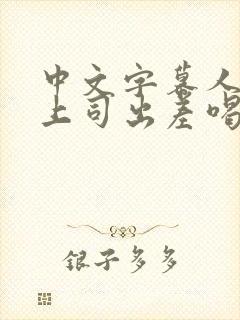 中文字幕人
上司出差喝
银子多多